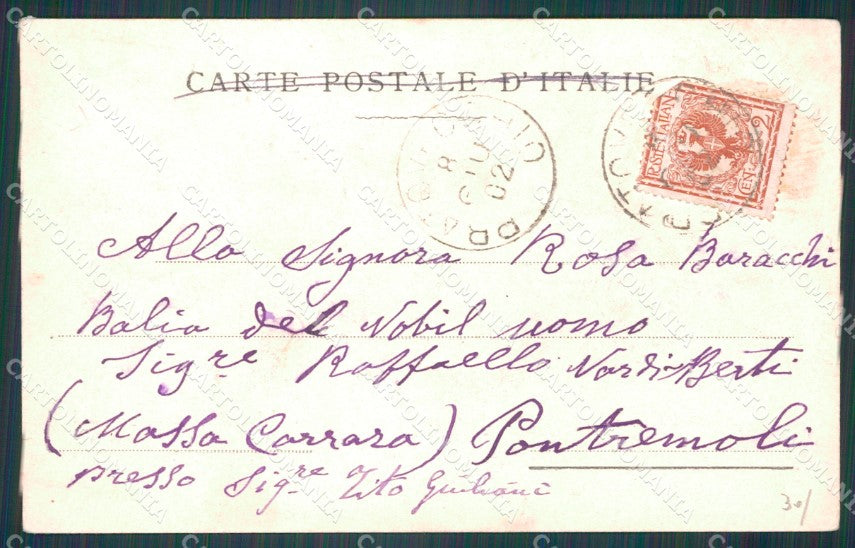 CARTE POSTALE D'ITALIE
POSTE ITALIANE
CEN. 2
PRATOVECCHIO
8
GIU
02
Alla Signora Rosa Baracchi
Balia del Nobil uomo
Sigre Raffaello Nardi-Berti
(Massa Carrara) Pontremoli
presso Sigre Tito Giuliani
CARTOLINOMANIA